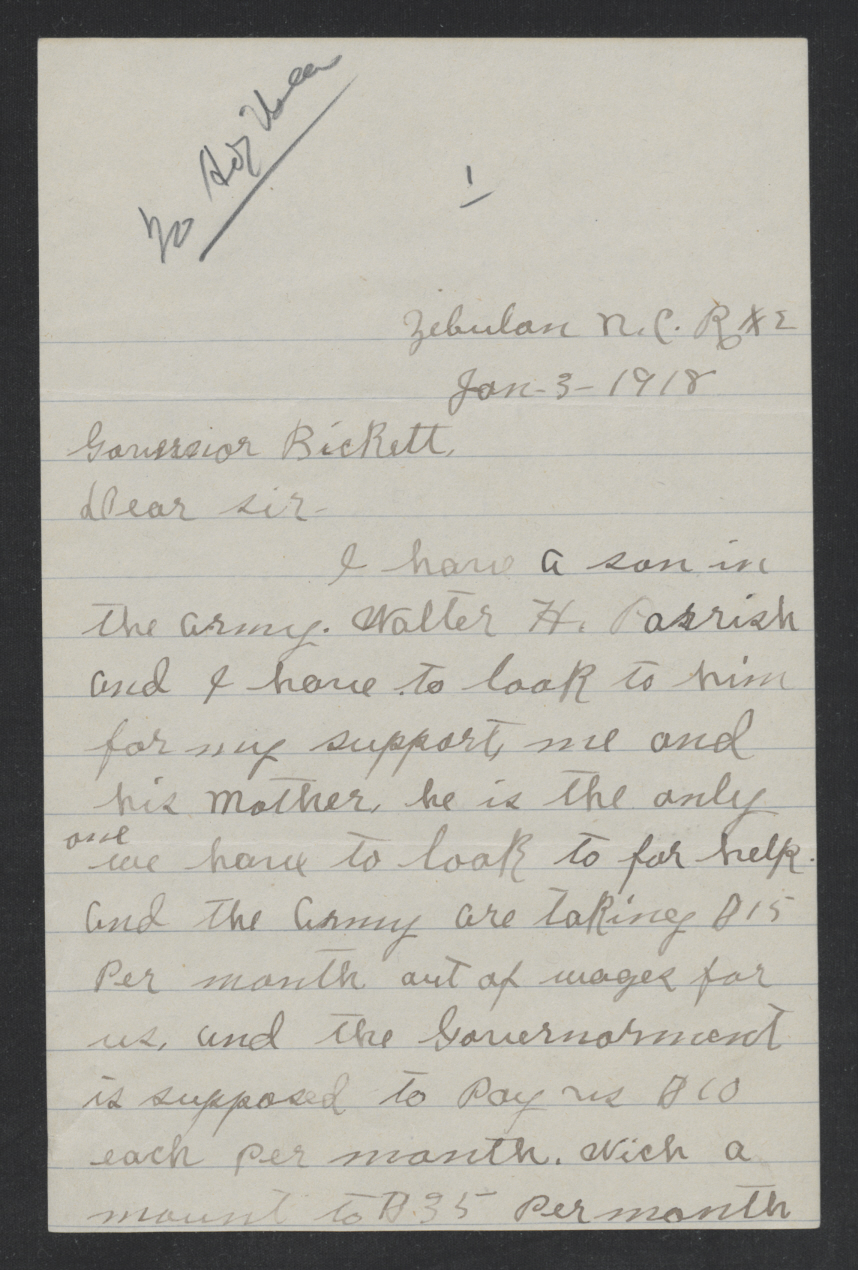 To
1
Zebulon N.C. R#2
Jan-3-1918
Governor Bickett,
Dear sir-
I have a son in
the army. Walter H. Parrish
and I have to look to him
for my support, me and
his mother, he is the only
one
we have to look to for help.
and the army are taking $15
Per month out of wages for
us, and the Governorment
is supposed to Pay us $10
each per month. Wich a
mount to $35 Per month